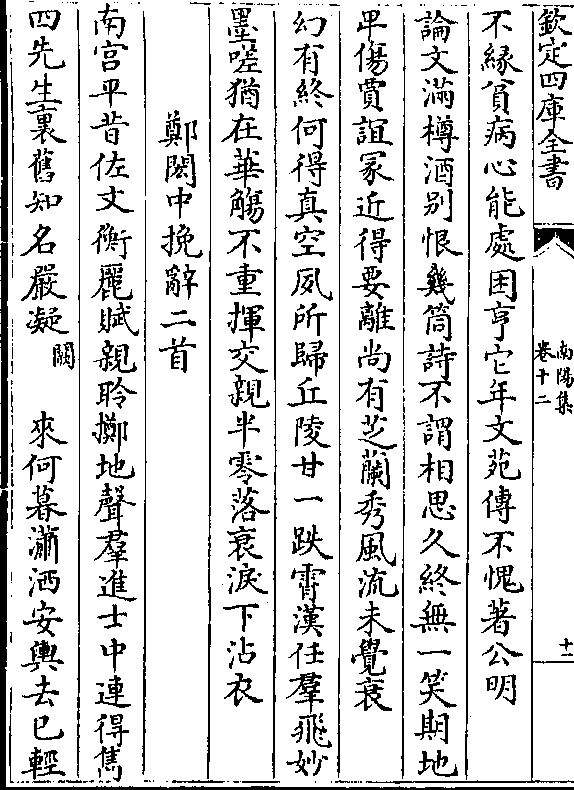 欽定四庫全書
南陽集
卷十二
十一
不縁貧病心能處困亨它年文苑傳不愧著公明
論文滿樽酒别恨幾筒詩不謂相思久終無一笑期地
卑傷賈誼冡近得要離尚有芝蘭秀風流未覺衰
幻有終何得真空夙所歸丘陵甘一跌霄漢任羣飛妙
墨嗟猶在華觴不重揮交親半零落衰淚下沾衣
鄭閎中挽辭二首
南宫平昔佐文衡麗賦親聆擲地聲羣進士中連得雋
四先生裏舊知名嚴凝闕來何暮瀟洒安輿去已輕